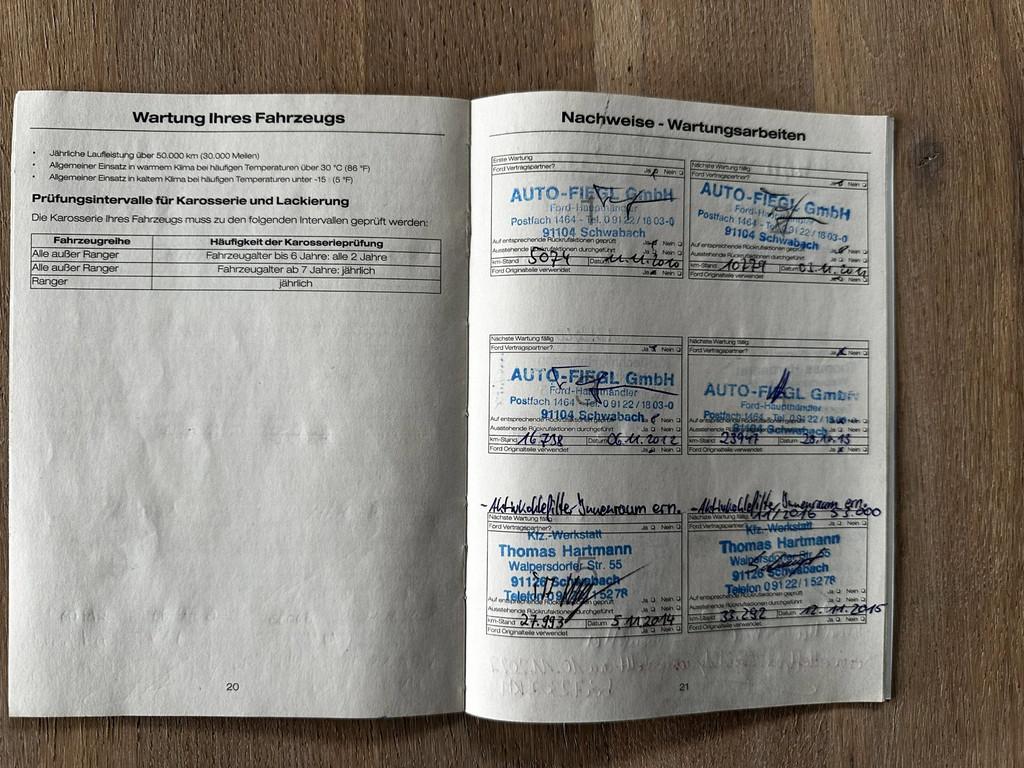 Wartung Ihres Fahrzeugs
• Jährliche Laufleistung über 50.000 km (30.000 Meilen)
• Allgemeiner Einsatz in warmem Klima bei häufigen Temperaturen über 30 °C (86 °F)
• Allgemeiner Einsatz in kaltem Klima bei häufigen Temperaturen unter -15 (5 °F)
Prüfungsintervalle für Karosserie und Lackierung
Die Karosserie Ihres Fahrzeugs muss zu den folgenden Intervallen geprüft werden:
Fahrzeugreihe Häufigkeit der Karosserieprüfung
Alle außer Ranger Fahrzeugalter bis 6 Jahre: alle 2 Jahre
Alle außer Ranger Fahrzeugalter ab 7 Jahre: jährlich
Ranger jährlich
20
Nachweise - Wartungsarbeiten
Erste Wartung
Ford Vertragspartner? Ja Nein
AUTO-FIEGL GmbH
Ford-Haupthändler
Postfach 1464 - Tel. 0 91 22 / 18 03-0
91104 Schwabach
Auf entsprechende Rückrufaktionen geprüft Ja Nein
Ausstehende Rückrufaktionen durchgeführt Ja Nein
km-Stand 5074 Datum 11.11.2010
Ford Originalteile verwendet Ja Nein
Nächste Wartung fällig
Ford Vertragspartner? Nein
AUTO-FIEGL GmbH
Postfach 1464 - Tel. 0 91 22 / 18 03-0
91104 Schwabach
Auf entsprechende Rückrufaktionen geprüft Ja Nein
Ausstehende Rückrufaktionen durchgeführt Ja Nein
km-Stand Datum
Ford Originalteile verwendet Ja Nein
Nächste Wartung fällig
Ford Vertragspartner? Ja Nein
AUTO-FIEGL GmbH
Ford-Haupthändler
Postfach 1464 - Tel. 0 91 22 / 18 03-0
91104 Schwabach
Auf entsprechende Rückrufaktionen geprüft Nein
Ausstehende Rückrufaktionen durchgeführt Ja Nein
km-Stand 16738 Datum 06.11.2012
Ford Originalteile verwendet Ja Nein
Nächste Wartung fällig
Ford Vertragspartner? Ja Nein
AUTO-FIEGL GmbH
Ford-Haupthändler
Postfach 1464 - Tel. 0 91 22 / 18 03-0
91104 Schwabach
Ausstehende Rückrufaktionen durchgeführt Ja Nein
km-Stand Datum
Ford Originalteile verwendet Ja Nein
- Aktivkohlefilter Innenraum ern.
Nächste Wartung fällig
Ford Vertragspartner? Ja Nein
Kfz.-Werkstatt
Thomas Hartmann
Walpersdorfer Str. 55
91126 Schwabach
Telefon 0 91 22 / 1 52 78
Auf entsprechende Rückrufaktionen geprüft Ja Nein
Ausstehende Rückrufaktionen durchgeführt Ja Nein
km-Stand 27.993 Datum 5.11.2014
Ford Originalteile verwendet Ja Nein
- Aktivkohlefilter Innenraum ern.
11/2016
Nächste Wartung fällig
Ford Vertragspartner?
Kfz.-Werkstatt
Thomas Hartmann
Walpersdorfer Str. 55
91126 Schwabach
Telefon 0 91 22 / 1 52 78
Ausstehende Rückrufaktionen durchgeführt Ja Nein
km-Stand 33.292 Datum 12.11.2015
Ford Originalteile verwendet Ja Nein
21